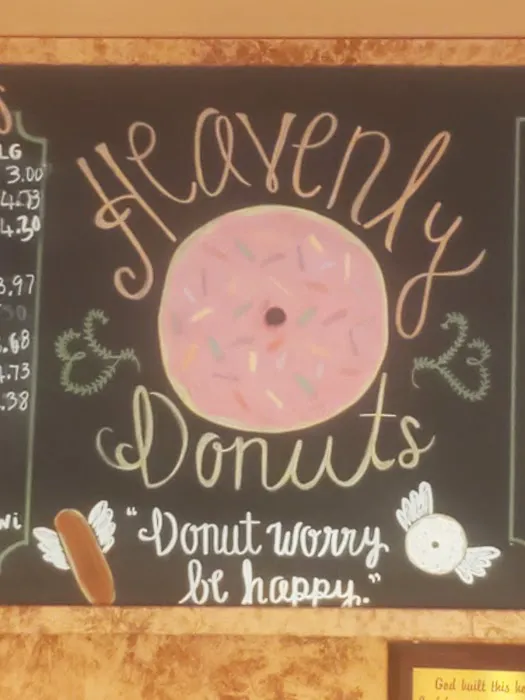 Heavenly
Donuts
"Donut worry
be happy."
LG
3.00
4.73
4.20
3.97
.68
4.73
.38
God built this